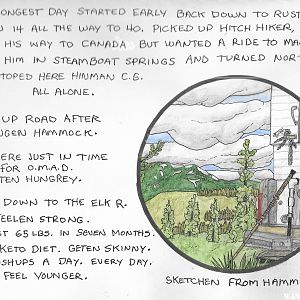 ONGEST DAY STARTED EARLY BACK DOWN TO RUST
N 14 ALL THE WAY TO 40. PICKED UP HITCH HIKER,
HIS WAY TO CANADA BUT WANTED A RIDE TO MA
HIM IN STEAMBOAT SPRINGS AND TURNED NOR
TOPED HERE HINMAN C.G.
ALL ALONE.
UP ROAD AFTER
NGEN HAMMOCK.
ERE JUST IN TIME
FOR O.M.A.D.
TEN HUNGREY.
DOWN TO THE ELK R.
FEELEN STRONG.
ST 65 LBS. IN SEVEN MONTHS.
KETO DIET. GETEN SKINNY.
SHUPS A DAY. EVERY DAY.
FEEL YOUNGER.
SKETCHEN FROM HAMM